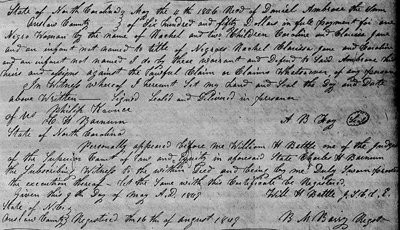 State of North Carolina } May the 4th 1836 Recd of Daniel Ambrose the Sum
Onslow County } of Six hundred and fifty Dollars in full payment for one
Negro Woman by the name of Rachel and two Children Caroline and Clarissa Jane
and an infant not named to title of Negroes Rachel Clarissa Jane and Caroline
and an infant not named I do by these warrant and Defend to Said Ambrose his
heirs and assigns against the Lawful Claim or Claims Whatsoever of any persons
In Witness whereof I hereunto Set my hand and Seal the Day and Date
above Written Signed Sealed and Delivered in presence
of us Philip
H Barnum A B Seal
State of North Carolina
Personally appeared before me William H Battle one of the Judges
of the Superior Court of law and Equity in aforesaid State Charles H Barnum
the Subscribing Witness to the within Deed and being by me Duly Sworn proved
the execution thereof Let the Same with this Certificate be Registered
Given this 9th Day of May A.D. 1847 Will H Battle J.S.C.L.E.
State of N.C.
Onslow County Registered the 16th of August 1847 B M Barry Regstr